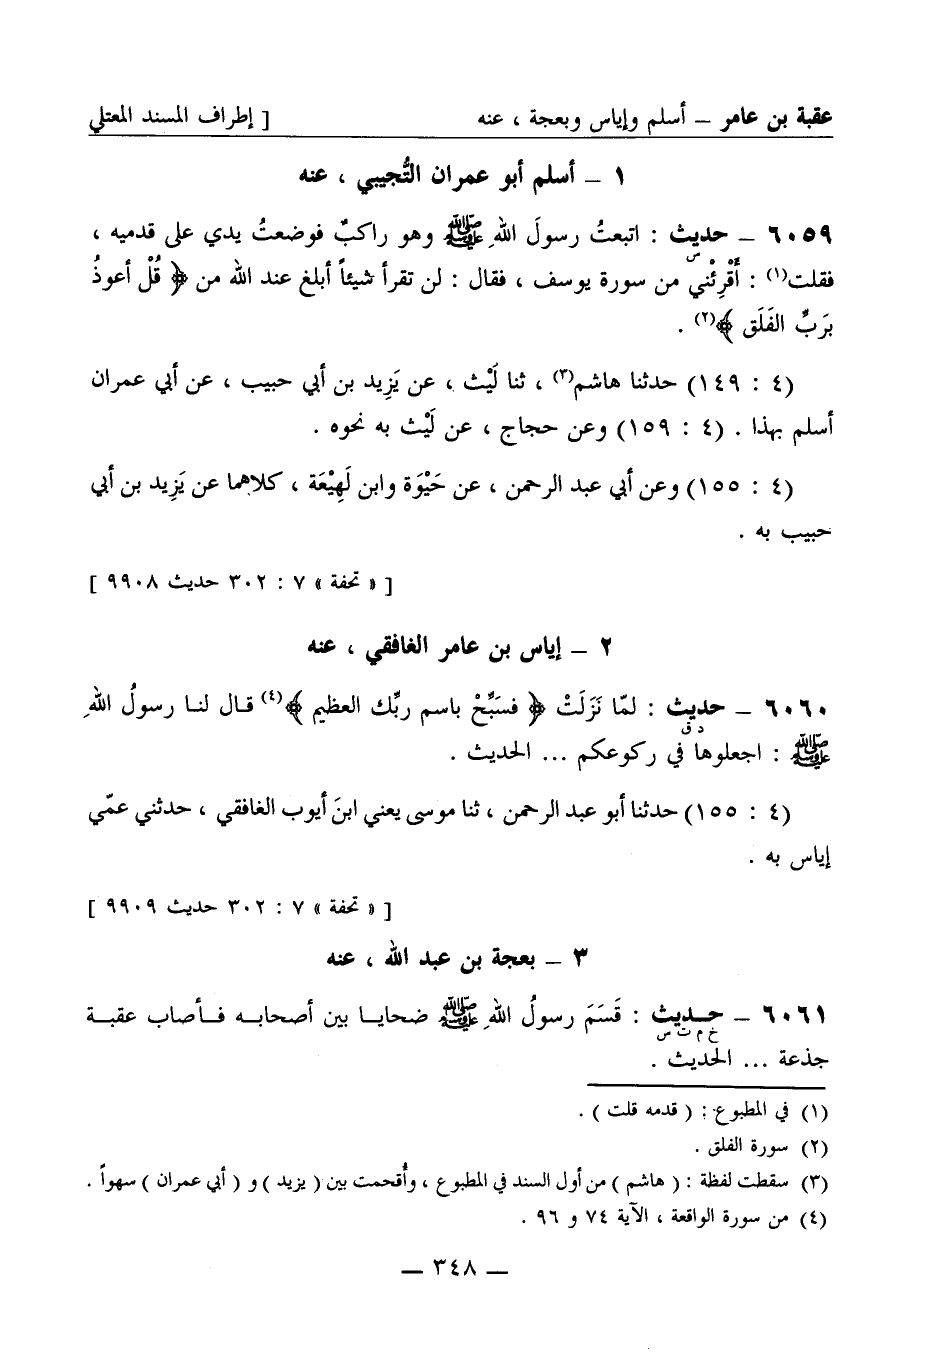 عقبة بن عامر – أسلم وإياس وبعجة ، عنه [ إطراف المسند المعتلي
١ – أسلم أبو عمران التُّجيبي ، عنه
٦٠٥٩ – حديث : اتبعتُ رسولَ اللهِ ﷺ وهو راكبٌ فوضعتُ يدي على قدميه ،
س
فقلت(١) : أَقْرِئْني من سورة يوسف ، فقال : لن تقرأ شيئاً أبلغ عند الله من ﴿ قُلْ أعوذُ
بَرَبِّ الفَلَق ﴾(٢) .
(٤ : ١٤٩) حدثنا هاشم(٣) ، ثنا لَيْث ، عن يَزِيد بن أبي حبيب ، عن أبي عمران
أسلم بهذا . (٤ : ١٥٩) وعن حجاج ، عن لَيْث به نحوه .
(٤ : ١٥٥) وعن أبي عبد الرحمن ، عن حَيْوَة وابن لَهِيْعَة ، كلاهما عن يَزِيد بن أبي
حبيب به .
[ « تحفة » ٧ : ٣٠٢ حديث ٩٩٠٨ ]
٢ – إياس بن عامر الغافقي ، عنه
٦٠٦٠ – حديث : لمّا نَزَلَتْ ﴿ فسَبِّحْ باسم ربِّك العظيم ﴾(٤) قال لنا رسولُ اللهِ
د ق
ﷺ : اجعلوها في ركوعكم ... الحديث .
(٤ : ١٥٥) حدثنا أبو عبد الرحمن ، ثنا موسى يعني ابنَ أيوب الغافقي ، حدثني عمّي
إياس به .
[ « تحفة » ٧ : ٣٠٢ حديث ٩٩٠٩ ]
٣ – بعجة بن عبد الله ، عنه
٦٠٦١ – حديث : قَسَمَ رسولُ اللهِ ﷺ ضحايا بين أصحابه فأصاب عقبة
خ م ت س
جذعة ... الحديث .
(١) في المطبوع : ( قدمه قلت ) .
(٢) سورة الفلق .
(٣) سقطت لفظة : ( هاشم ) من أول السند في المطبوع ، وأُقحمت بين ( يزيد ) و ( أبي عمران ) سهواً .
(٤) من سورة الواقعة ، الآية ٧٤ و ٩٦ .
– ٣٤٨ –